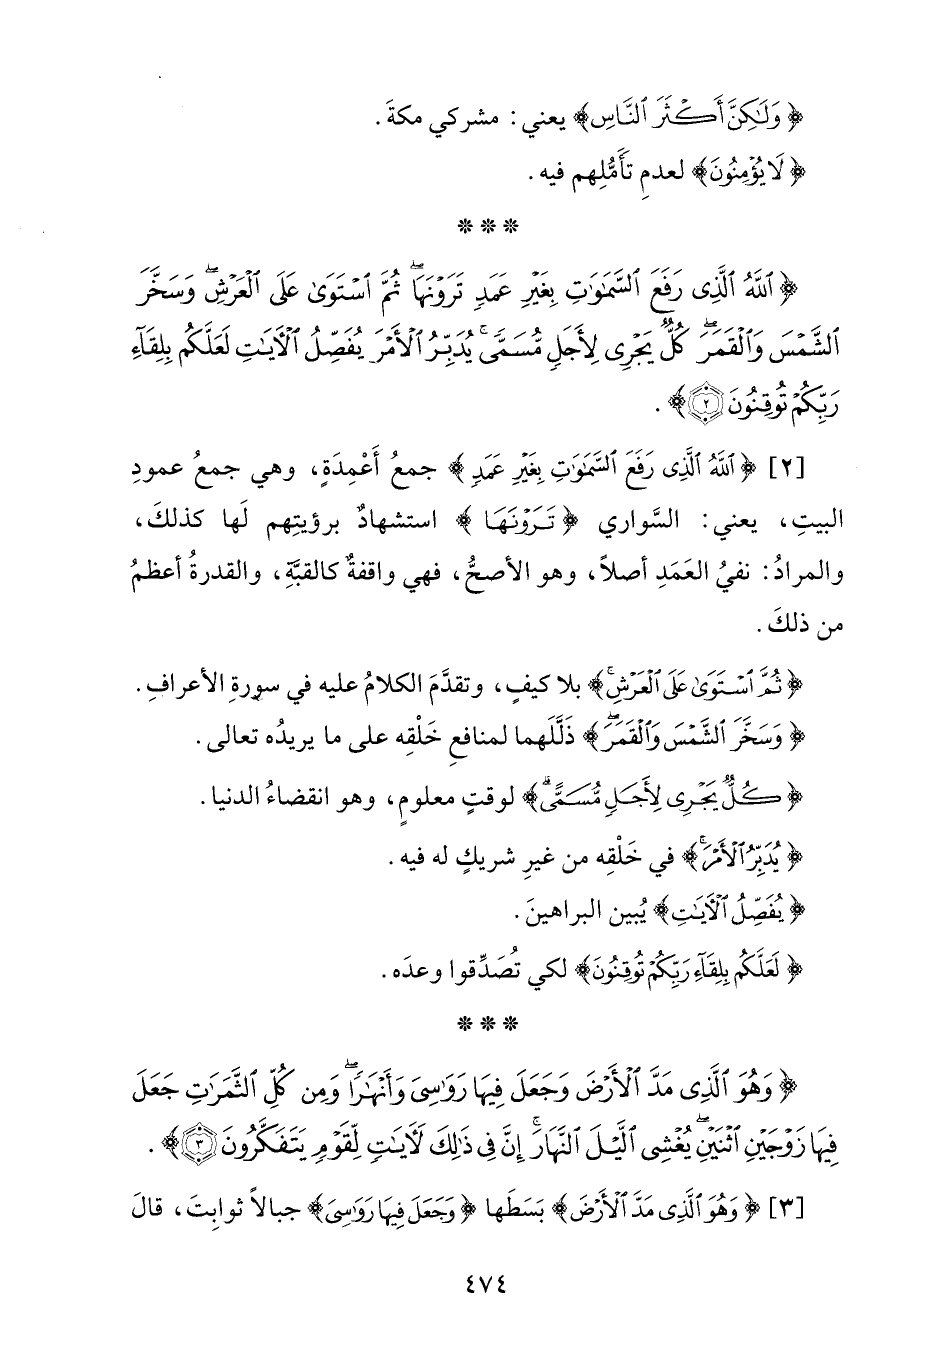 ﴿ وَلَٰكِنَّ أَكْثَرَ ٱلنَّاسِ﴾ يعني: مشركي مكةَ.
﴿ لَا يُؤْمِنُونَ﴾ لعدمِ تأَمُّلِهم فيه.
* * *
﴿ ٱللَّهُ ٱلَّذِى رَفَعَ ٱلسَّمَٰوَٰتِ بِغَيْرِ عَمَدٍ تَرَوْنَهَا ۖ ثُمَّ ٱسْتَوَىٰ عَلَى ٱلْعَرْشِ ۖ وَسَخَّرَ
ٱلشَّمْسَ وَٱلْقَمَرَ ۖ كُلٌّ يَجْرِى لِأَجَلٍ مُّسَمًّى ۚ يُدَبِّرُ ٱلْأَمْرَ يُفَصِّلُ ٱلْآيَٰتِ لَعَلَّكُم بِلِقَآءِ
رَبِّكُمْ تُوقِنُونَ ۝٢﴾ .
[٢] ﴿ ٱللَّهُ ٱلَّذِى رَفَعَ ٱلسَّمَٰوَٰتِ بِغَيْرِ عَمَدٍ ﴾ جمعُ أَعْمِدَةٍ، وهي جمعُ عمودِ
البيتِ، يعني: السَّواري ﴿ تَرَوْنَهَا ﴾ استشهادٌ برؤيتِهم لَها كذلكَ،
والمرادُ: نفيُ العَمَدِ أصلاً، وهو الأصحُّ، فهي واقفةٌ كالقبَّةِ، والقدرةُ أعظمُ
من ذلكَ.
﴿ ثُمَّ ٱسْتَوَىٰ عَلَى ٱلْعَرْشِ ۚ﴾ بلا كيفٍ، وتقدَّمَ الكلامُ عليه في سورةِ الأعرافِ.
﴿ وَسَخَّرَ ٱلشَّمْسَ وَٱلْقَمَرَ ۖ﴾ ذَلَّلَهما لمنافعِ خَلْقِه على ما يريدُه تعالى.
﴿ كُلٌّ يَجْرِى لِأَجَلٍ مُّسَمًّى ۗ﴾ لوقتٍ معلومٍ، وهو انقضاءُ الدنيا.
﴿ يُدَبِّرُ ٱلْأَمْرَ ۚ﴾ في خَلْقِه من غيرِ شريكٍ له فيه.
﴿ يُفَصِّلُ ٱلْآيَٰتِ﴾ يُبين البراهينَ.
﴿ لَعَلَّكُم بِلِقَآءِ رَبِّكُمْ تُوقِنُونَ﴾ لكي تُصَدِّقوا وعدَه.
* * *
﴿ وَهُوَ ٱلَّذِى مَدَّ ٱلْأَرْضَ وَجَعَلَ فِيهَا رَوَٰسِىَ وَأَنْهَٰرًا ۖ وَمِن كُلِّ ٱلثَّمَرَٰتِ جَعَلَ
فِيهَا زَوْجَيْنِ ٱثْنَيْنِ ۖ يُغْشِى ٱلَّيْلَ ٱلنَّهَارَ ۚ إِنَّ فِى ذَٰلِكَ لَآيَٰتٍ لِّقَوْمٍ يَتَفَكَّرُونَ ۝٣﴾ .
[٣] ﴿ وَهُوَ ٱلَّذِى مَدَّ ٱلْأَرْضَ﴾ بَسَطَها ﴿ وَجَعَلَ فِيهَا رَوَٰسِىَ﴾ جبالاً ثوابِتَ، قالَ
٤٧٤